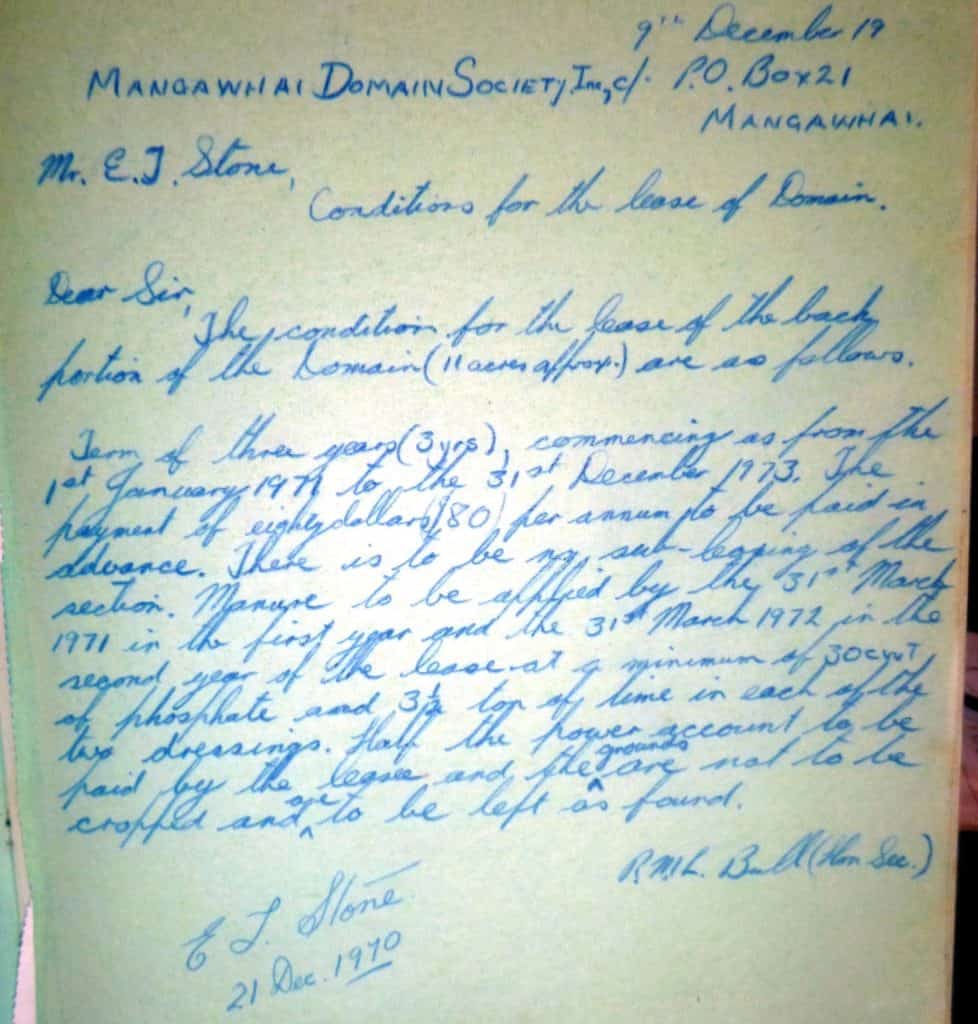 9th December 19
MANGAWHAI DOMAIN SOCIETY, Inc, c/. P.O. Box 21
MANGAWHAI.
Mr. E. J. Stone,
Conditions for the lease of Domain.
Dear Sir,
The condition for the lease of the back
portion of the Domain (11 acres approx.) are as follows.
Term of three years (3 yrs), commencing as from the
1st January, 1971 to the 31st December 1973. The
payment of eighty dollars $80 per annum to be paid in
advance. There is to be no sub-leasing of the
section. Manure to be applied by the 31st March
1971 in the first year and the 31st March 1972 in the
second year of the lease at a minimum of 30cwt
of phosphate and 3½ ton of lime in each of the
two dressings. Half the power account to be
paid by the leasee and the grounds are not to be
cropped and are to be left as found.
Bull (Hon Sec.)
E J. Stone
21 Dec. 1970